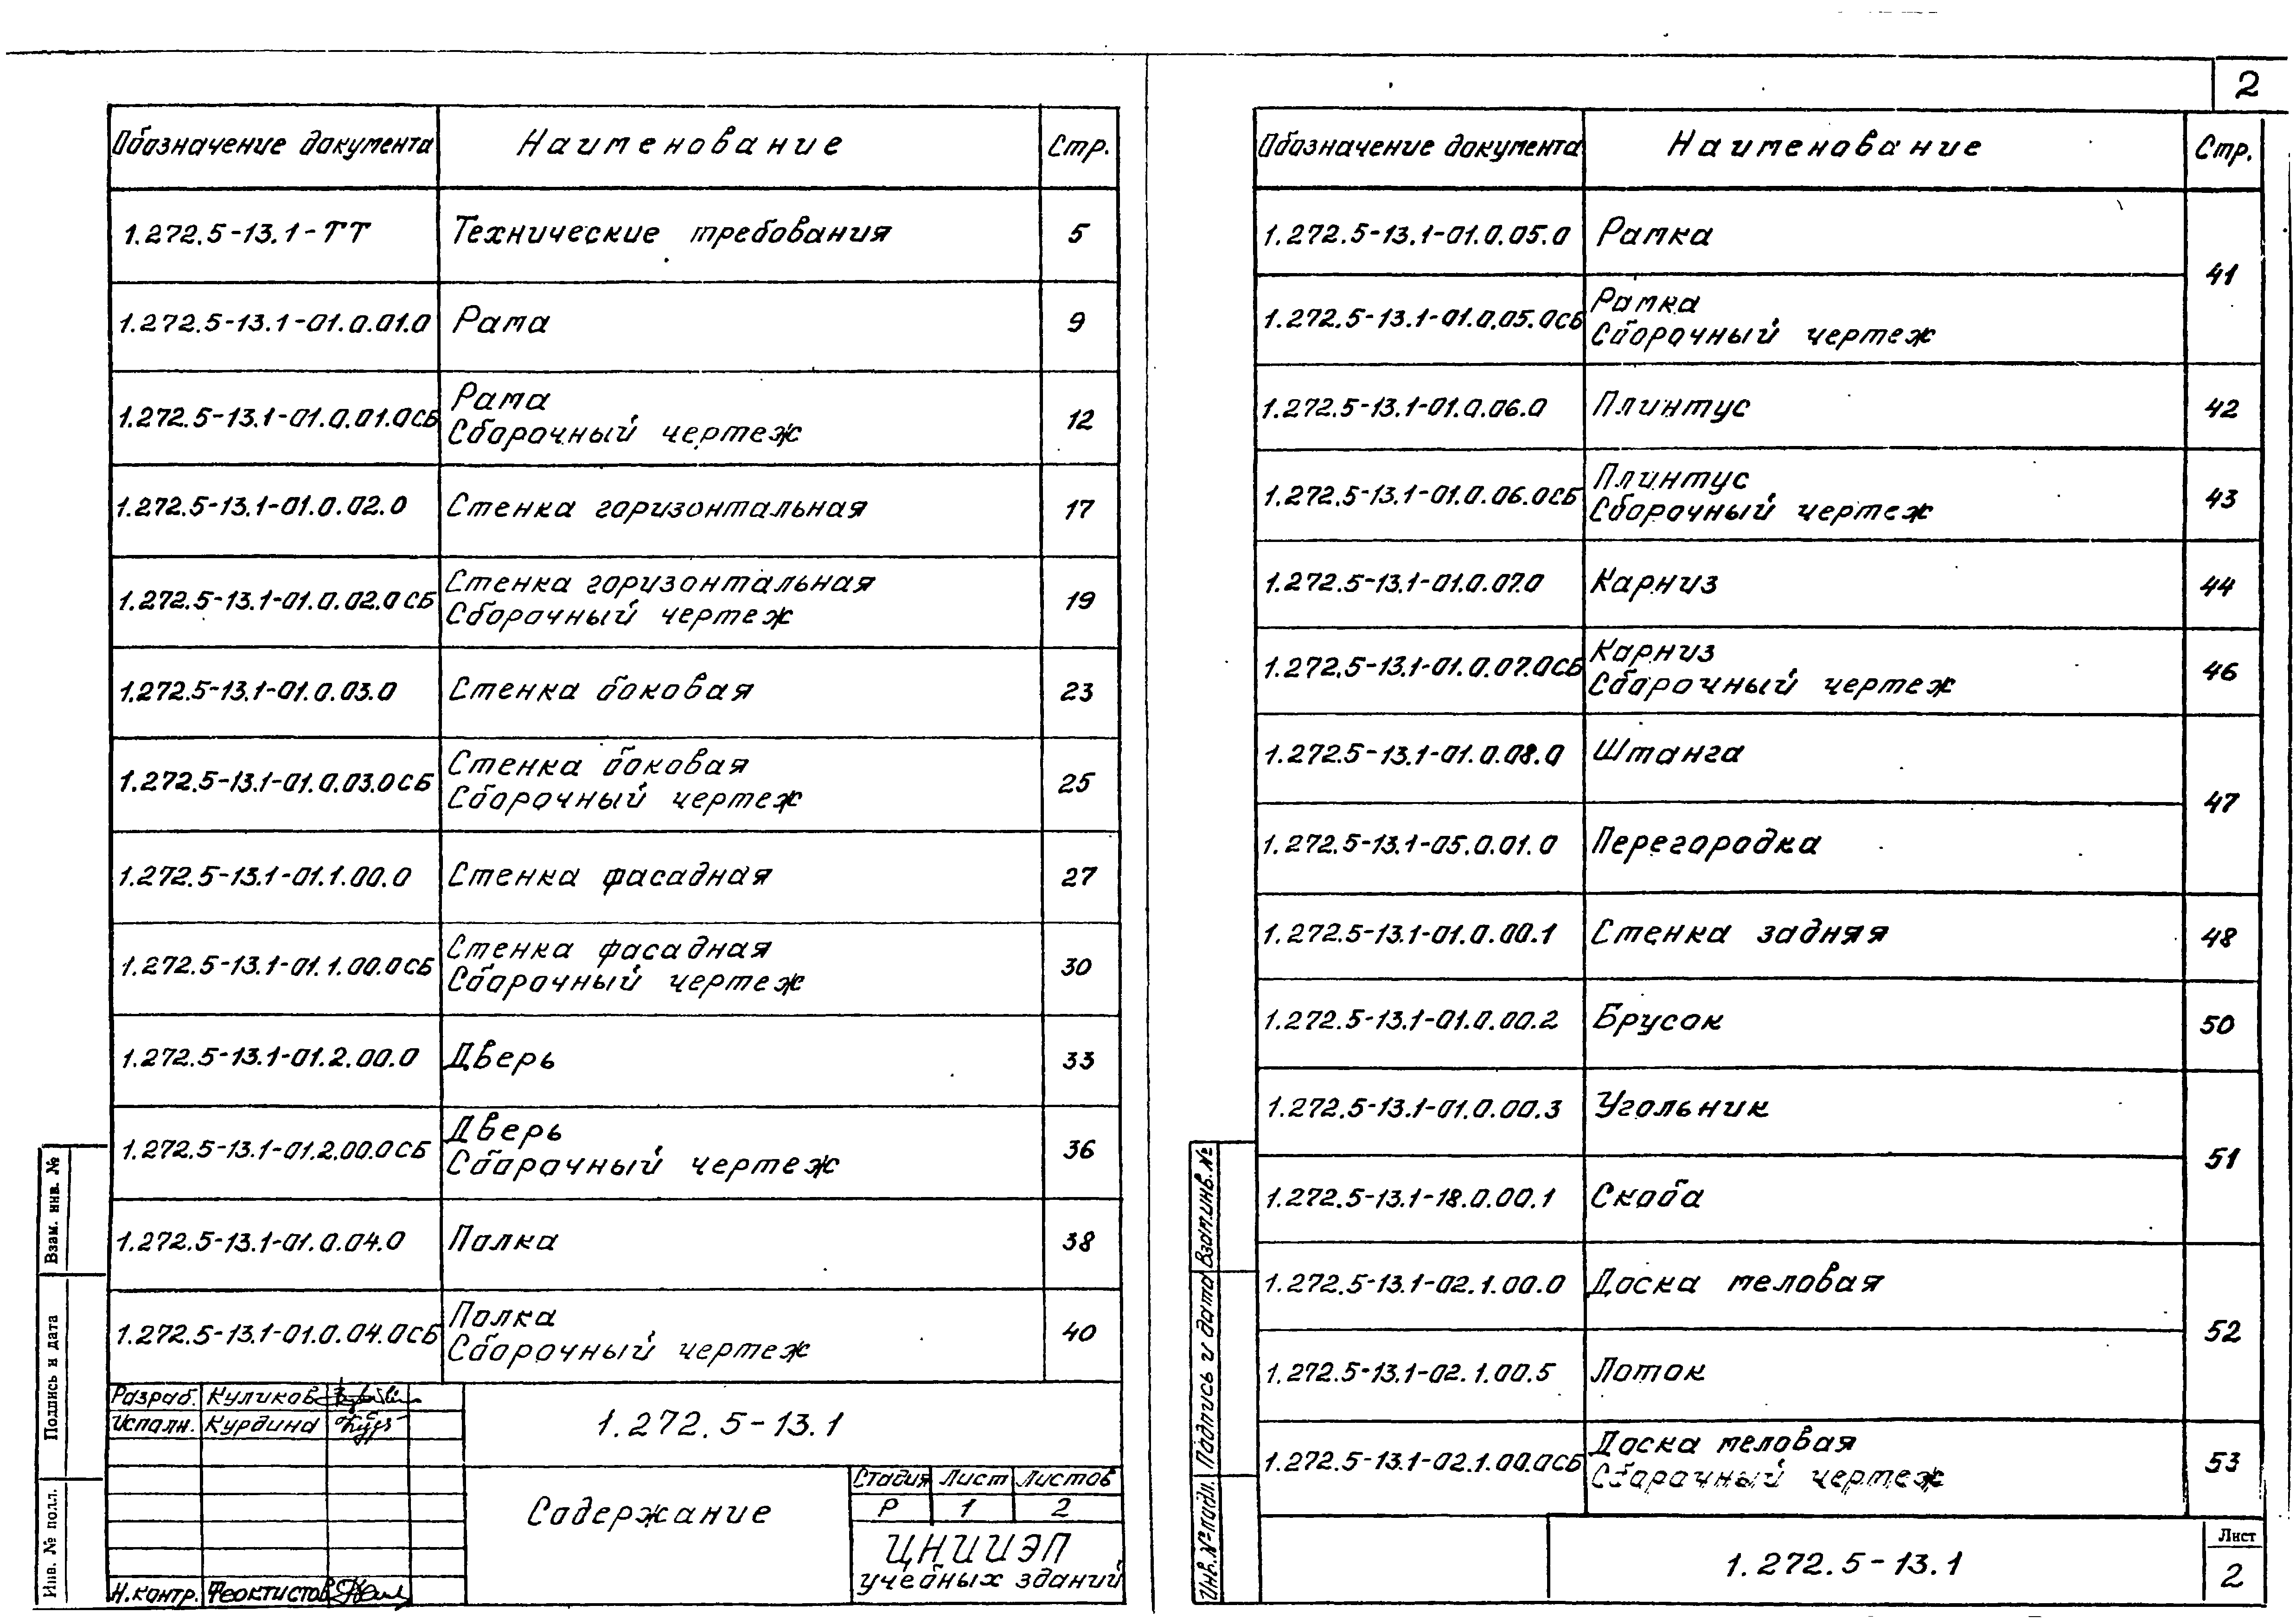 2
Обозначение документа Наименование Стр.
1.272.5-13.1-ТТ Технические требования 5
1.272.5-13.1-01.0.01.0 Рама 9
1.272.5-13.1-01.0.01.0СБ Рама
Сборочный чертеж 12
1.272.5-13.1-01.0.02.0 Стенка горизонтальная 17
1.272.5-13.1-01.0.02.0СБ Стенка горизонтальная
Сборочный чертеж 19
1.272.5-13.1-01.0.03.0 Стенка боковая 23
1.272.5-13.1-01.0.03.0СБ Стенка боковая
Сборочный чертеж 25
1.272.5-13.1-01.1.00.0 Стенка фасадная 27
1.272.5-13.1-01.1.00.0СБ Стенка фасадная
Сборочный чертеж 30
1.272.5-13.1-01.2.00.0 Дверь 33
1.272.5-13.1-01.2.00.0СБ Дверь
Сборочный чертеж 36
1.272.5-13.1-01.0.04.0 Полка 38
1.272.5-13.1-01.0.04.0СБ Полка
Сборочный чертеж 40
Разраб. Куликов
Исполн. Курдина
1.272.5-13.1
Содержание
Стадия Лист Листов
Р 1 2
ЦНИИЭП
учебных зданий
Н.контр. Феоктистов
Взам. инв. №
Подпись и дата
Инв. № подл.
Обозначение документа Наименование Стр.
1.272.5-13.1-01.0.05.0 Рамка
41
1.272.5-13.1-01.0.05.0СБ Рамка
Сборочный чертеж
1.272.5-13.1-01.0.06.0 Плинтус 42
1.272.5-13.1-01.0.06.0СБ Плинтус
Сборочный чертеж 43
1.272.5-13.1-01.0.07.0 Карниз 44
1.272.5-13.1-01.0.07.0СБ Карниз
Сборочный чертеж 46
1.272.5-13.1-01.0.08.0 Штанга
47
1.272.5-13.1-05.0.01.0 Перегородка
1.272.5-13.1-01.0.00.1 Стенка задняя 48
1.272.5-13.1-01.0.00.2 Брусок 50
1.272.5-13.1-01.0.00.3 Угольник
51
1.272.5-13.1-18.0.00.1 Скоба
1.272.5-13.1-02.1.00.0 Доска меловая
52
1.272.5-13.1-02.1.00.5 Лоток
1.272.5-13.1-02.1.00.0СБ Доска меловая
Сборочный чертеж 53
1.272.5-13.1
Лист
2
Взам.инв.№
Подпись и дата
Инв.№ подл.